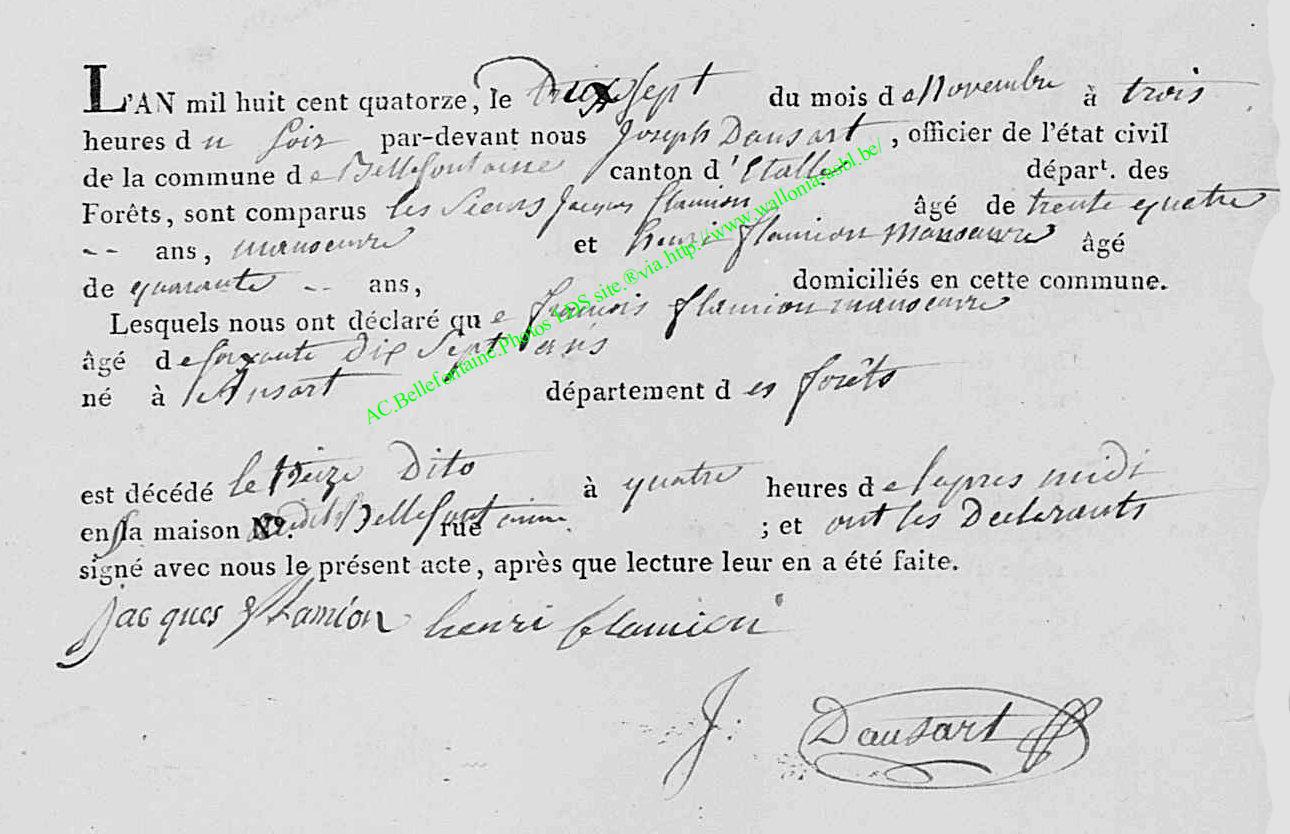 L'AN mil huit cent quatorze, le dix sept du mois de Novembre à trois
heures du soir par-devant nous Joseph Dausart, officier de l'état civil
de la commune de Bellefontaine canton d'Etalle départ. des
Forêts, sont comparus les Sieurs Jacques flamion âgé de trente quatre
-- ans, manoeuvre et henri flamion Manoeuvre âgé
de quarante -- ans, domiciliés en cette commune.
Lesquels nous ont déclaré que françois flamion manoeuvre
âgé de soixante Dix Sept ans
né à Ansart département des forêts
est décédé le Dito à quatre heures de lapres midi
en sa maison N.º Bellefontaine rue ; et ont les Declarants
signé avec nous le présent acte, après que lecture leur en a été faite.
jacques flamion henri flamion
J: Dausart
AC.Bellefontaine.Photos LDS site.®via.http://www.wallonia-asbl.be/